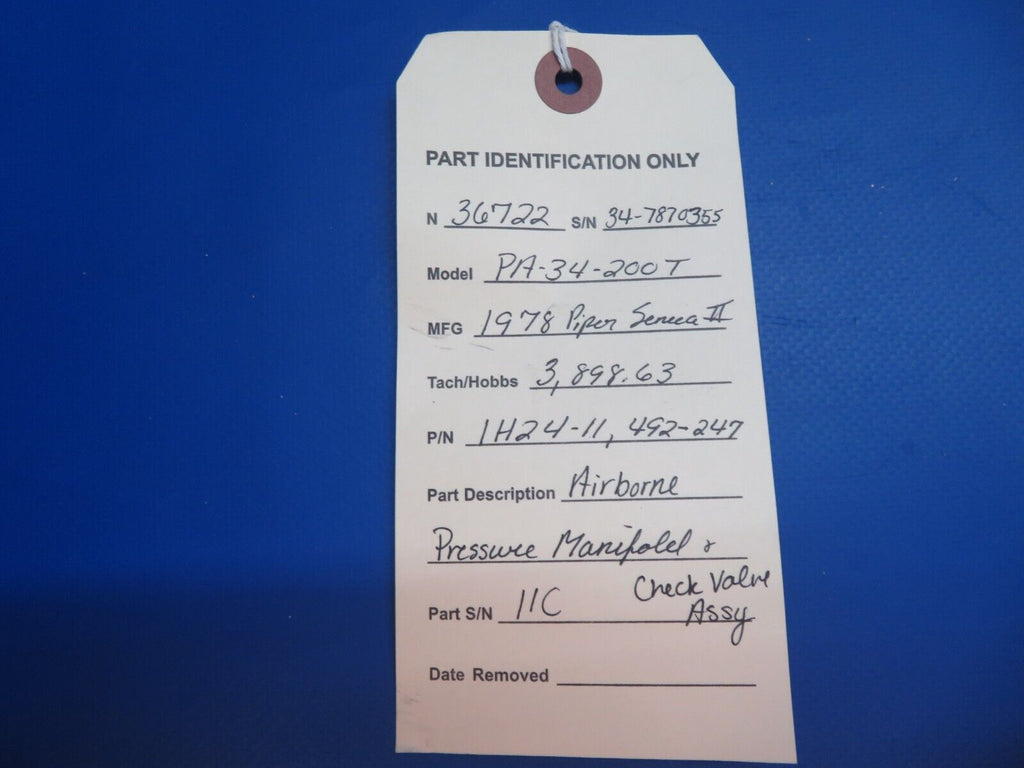 PART IDENTIFICATION ONLY
N 36722 S/N 34-7870355
Model PA-34-200T
MFG 1978 Piper Seneca II
Tach/Hobbs 3,898.63
P/N 1H24-11, 492-247
Part Description Airborne
Pressure Manifold &
Check Valve
Part S/N 11C Assy
Date Removed